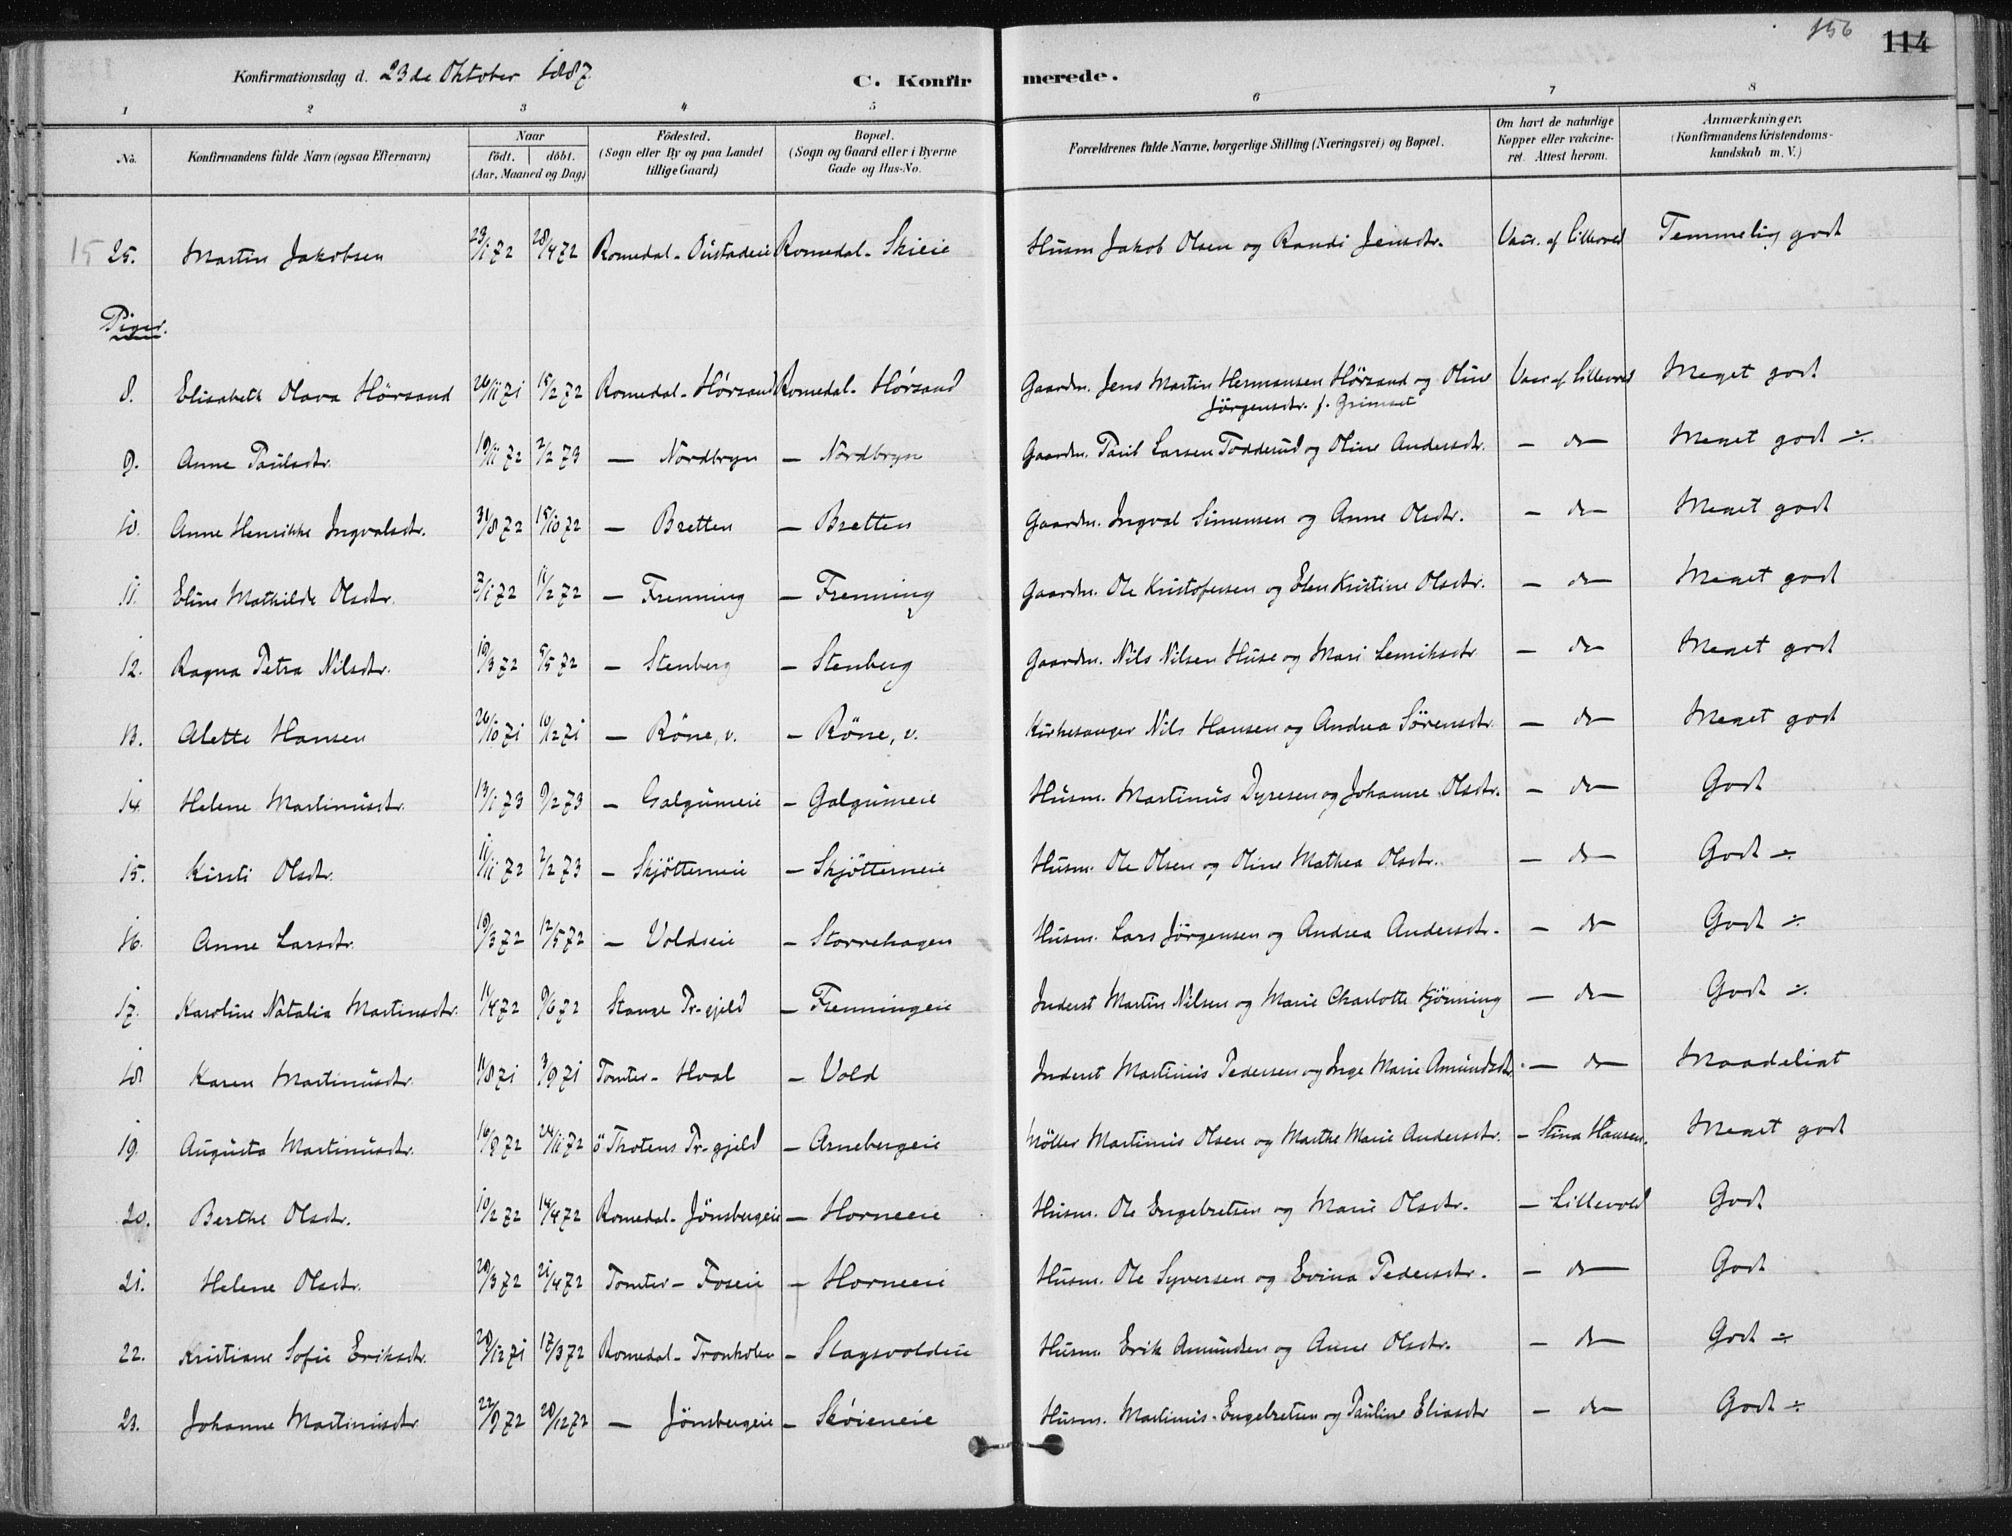 156 114
Konfirmationsdag d. 23de Oktober 1887 C. Konfirmerede.
1 2 3 4 5 6 7 8
No. Konfirmandens fulde Navn (ogsaa Efternavn) Naar födt. döbt. (Aar, Maaned og Dag) Födested. (Sogn eller By og paa Landet tillige Gaard) Bopæl. (Sogn og Gaard eller i Byerne Gade og Hus-No. Forældrenes fulde Navne, borgerlige Stilling (Næringsvei) og Bopæl. Om havt de naturlige Kopper eller vakcineret. Attest herom. Anmærkninger. (Konfirmandens Kristendomskundskab m. V.)
15 25. Martin Jakobsen 29/1 72 28/4 72 Romedal - Oustadeie Romedal - Skieie Husm Jakob Olsen og Randi Jensdtr. Vacc. af Lillevold Temmelig godt
Piger.
8. Elisabeth Olava Hörsand 26/11 71 18/2 72 Romedal - Hörsand Romedal - Hörsand Gaardm. Jens Martin Hermansen Hörsand og Oline Jörgensdtr. f. Grimset Vacc af Lillevold Meget godt
9. Anne Paulsdtr. 19/11 72 2/2 73 — Nordbryn — Nordbryn Gaardm. Paul Larsen Todderud og Oline Andersdtr. — do — Meget godt ÷
10. Anne Henrikke Ingvalsdtr. 31/8 72 15/10 72 — Bretten — Bretten Gaardm. Ingval Simensen og Anne Olsdtr. — do — Meget godt
11. Eline Mathilde Olsdtr. 7/1 72 11/2 72 — Frenning — Frenning Gaardm. Ole Kristofersen og Elen Kristine Olsdtr. — do — Meget godt
12. Ragna Petra Nilsdtr. 10/3 72 5/5 72 — Stenberg — Stenberg Gaardm. Nils Nilsen Huse og Mari Lenriksdtr — do — Meget godt
13. Alette Hansen 26/10 71 10/12 71 — Röne, v. — Röne, v. Kirkesanger Nils Hansen og Andrea Sörensdtr. — do — Meget godt
14 Helene Martinusdtr. 13/1 73 9/2 73 — Galgumeie — Galgumeie Husm. Martinus Dyresen og Johanne Olsdtr. — do — Godt
15. Kirsti Olsdtr. 11/11 72 2/2 73 — Skjötterneie — Skjötterneie Husm. Ole Olsen og Oline Mathea Olsdtr. — do — Godt ÷
16. Anne Larsdtr. 19/3 72 12/5 72 — Voldseie — Storrehagen Husm. Lars Jörgensen og Andrea Andersdtr. — do — Godt ÷
17. Karoline Natalia Martinsdtr. 11/4 72 9/6 72 Stange Pr-gjeld — Frenningeie Inderst Martin Nilsen og Marie Charlotte Kjönning — do — Godt ÷
18 Karen Martinusdtr. 11/8 71 3/9 71 Tomter - Hval — Vold Inderst Martinus Pedersen og Inge Marie Amundsdtr. — do — Maadeligt
19. Augusta Martinusdtr. 16/8 72 24/11 72 ö Thotens Pr-gjeld — Arnebergeie Möller Martinus Olsen og Marthe Marie Andersdtr. — Stina Hansen. Meget godt
20. Berthe Olsdtr. 10/2 72 14/4 72 Romedal - Jönsbergeie — Horneeie Husm. Ole Engebretsen og Marie Olsdtr. — Lillevold Godt
21. Helene Olsdtr. 20/3 72 21/4 72 Tomter - Foseie — Horneeie Husm. Ole Syversen og Evina Pedersdtr. — do — Godt
22. Kristiane Sofie Eriksdtr. 28/12 71 17/3 72 Romedal - Tronholen — Slagsvoldeie Husm. Erik Amundsen og Anne Olsdtr. — do — Godt ÷
23. Johanne Martinusdtr 22/9 72 20/12 72 — Jönsbergeie — Skóieneie Husm. Martinus Engebretsen og Pauline Eliasdtr — do — Godt ÷